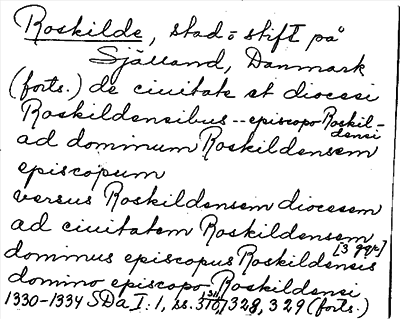 Roskilde, stad = stift på
Själland, Danmark
(forts.) de ciuitate et diocesi
Roskildensibus -- episcopo Roskil-
densi
ad dominum Roskildensem
episcopum
versus Roskildensem diocesem
ad ciuitatem Roskildensem
[3 ggr]
dominus episcopus Roskildensis
domino episcopo Roskildensi
1330-1334 SDa I:1, ss. 310, 328, 329 (forts.)